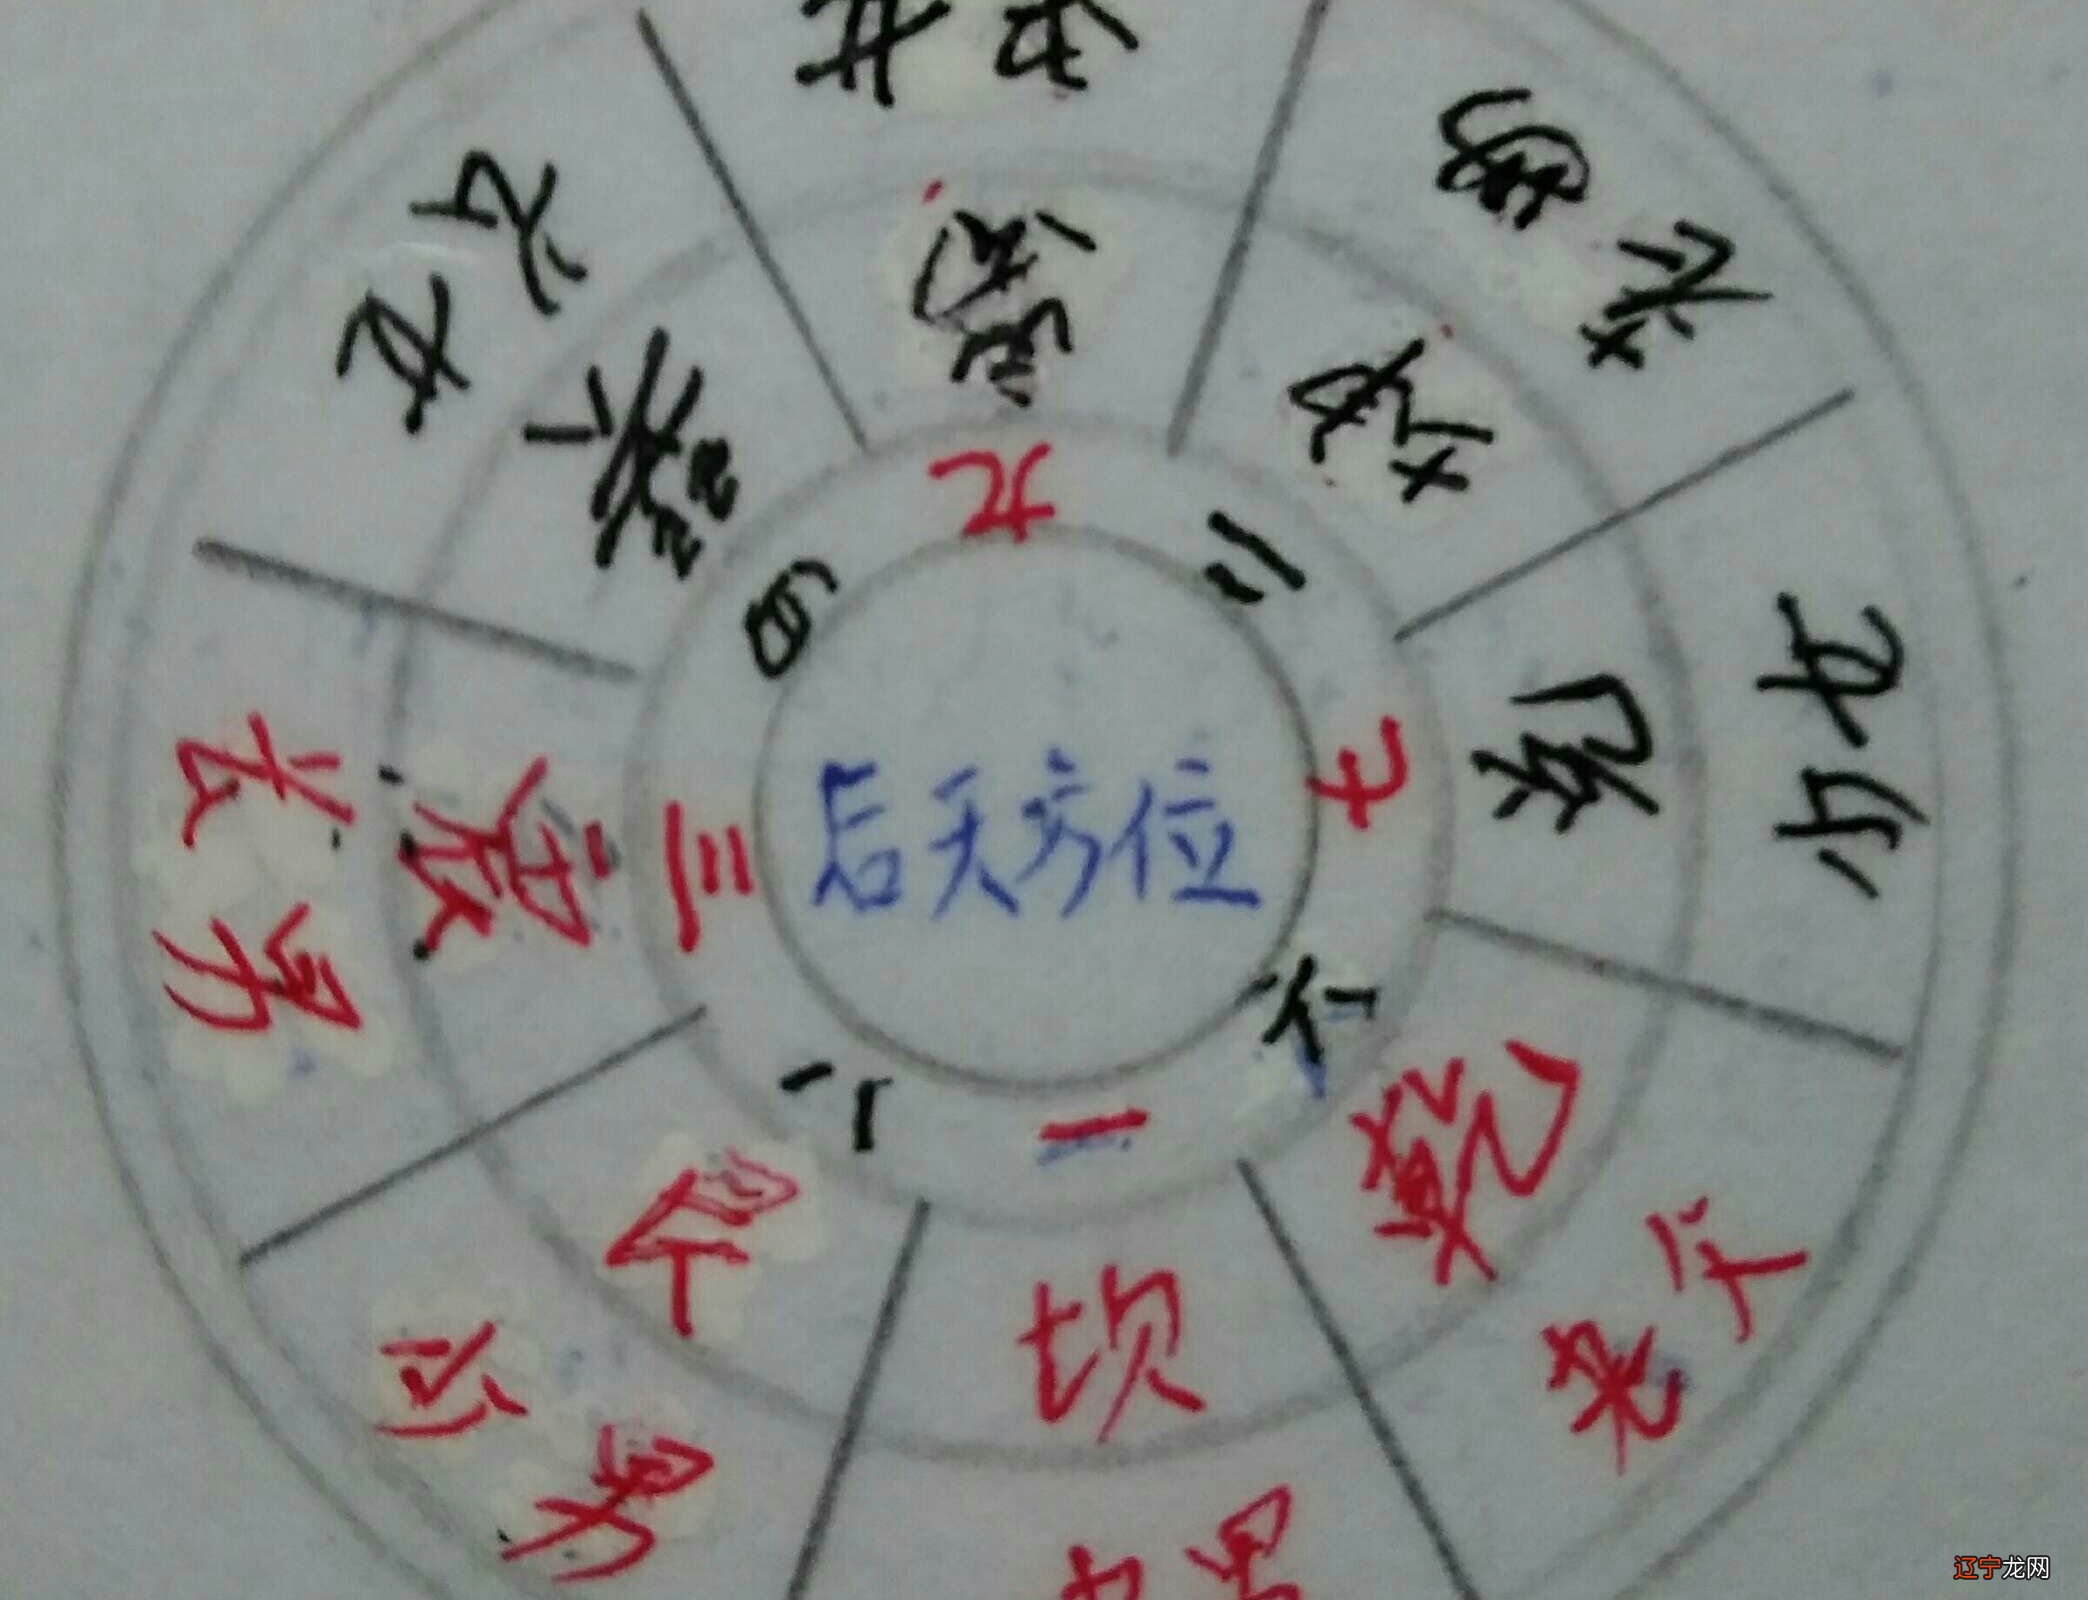 后天方位
九
二
七
六
一
八
三
四
離
坤
兑
乾
坎
艮
震
巽
少女
老父
中男
少男
长男
长女
辽宁龙网